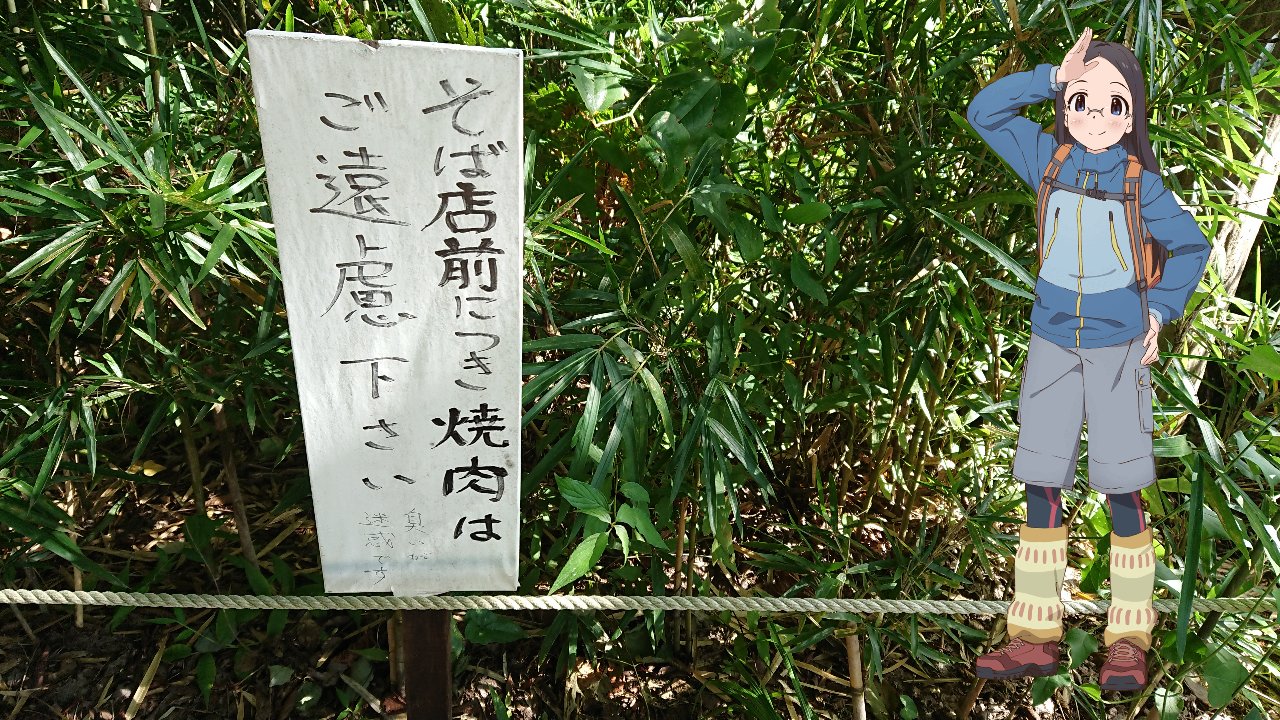 そば店前につき焼肉は
ご遠慮下さい
臭いが
迷惑です